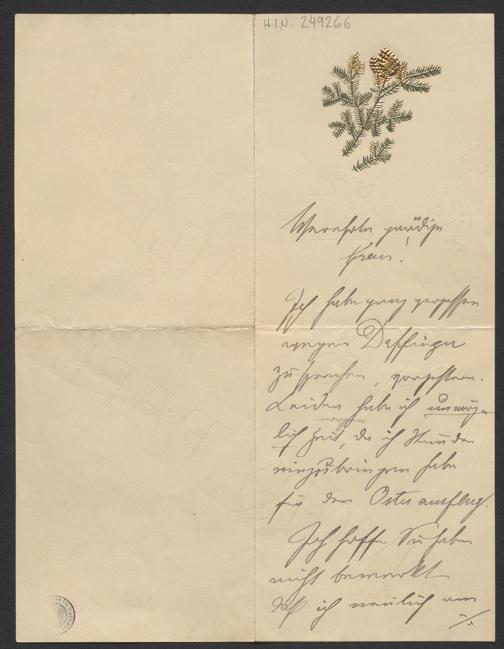 H.I.N. 249266
Verehrte gnädige
Frau!
Ich habe ganz vergessen
wegen Daffinger
zu sprechen, vorgestern.
Leider habe ich unmög-
lich Zeit, da ich Stunden
einzubringen habe
für den Osterausflug.
Ich hoffe Sie haben
nicht bemerkt
daß ich neulich am
./.